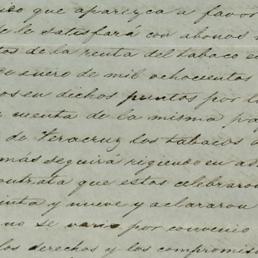 que aparezca a favor
le satisfará con abonos
de la renta del tabaco en
enero de mil ochocientos
en dichos puntos por la
cuenta de la misma
de Veracruz los tabacos
más seguirá rigiendo en
contrata que estos celebraron
y nueve y aclararon
no se varie por convenio
los derechos y los compromisos